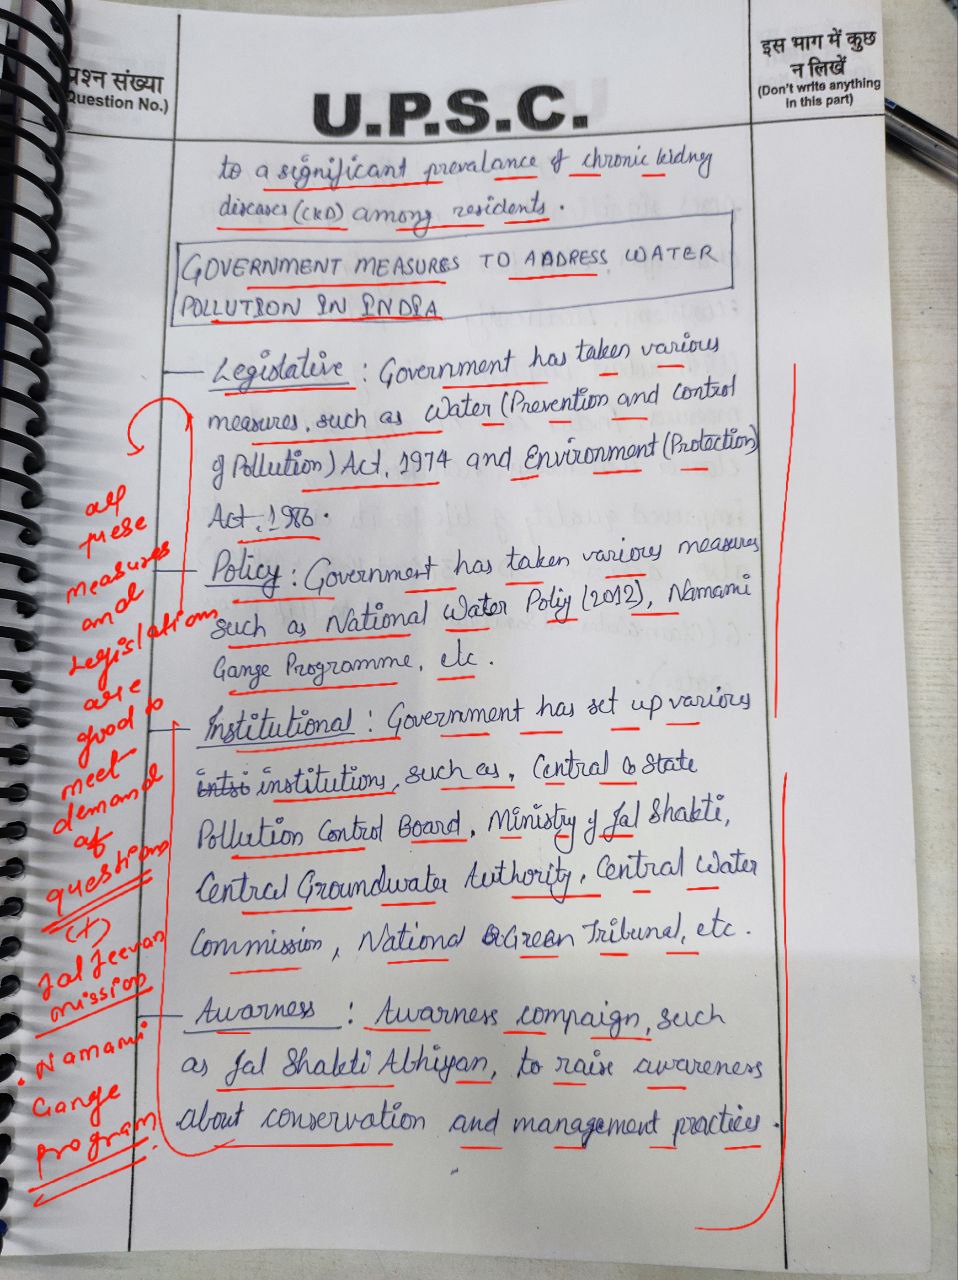 प्रश्न संख्या
(Question No.)
U.P.S.C.
इस भाग में कुछ
न लिखें
(Don't write anything
in this part)
to a significant prevalance of chronic kidney
diseases (CKD) among residents.
GOVERNMENT MEASURES TO ADDRESS WATER
POLLUTION IN INDIA
Legislative : Government has taken various
measures, such as Water (Prevention and Control
of Pollution) Act, 1974 and Environment (Protection)
Act, 1986.
Policy : Government has taken various measures
such as National Water Policy (2012), Namami
Gange Programme, etc.
Institutional : Government has set up various
institutions, such as, Central & State
Pollution Control Board, Ministry of Jal Shakti,
Central Groundwater Authority, Central Water
Commission, National Green Tribunal, etc.
Awarness : Awarness compaign, such
as Jal Shakti Abhiyan, to raise awareness
about conservation and management practices.
all
these
measures
and
Legislations
are
good to
meet
demand
of
questions
(+)
Jal Jeevan
mission
. Namami
Gange
program